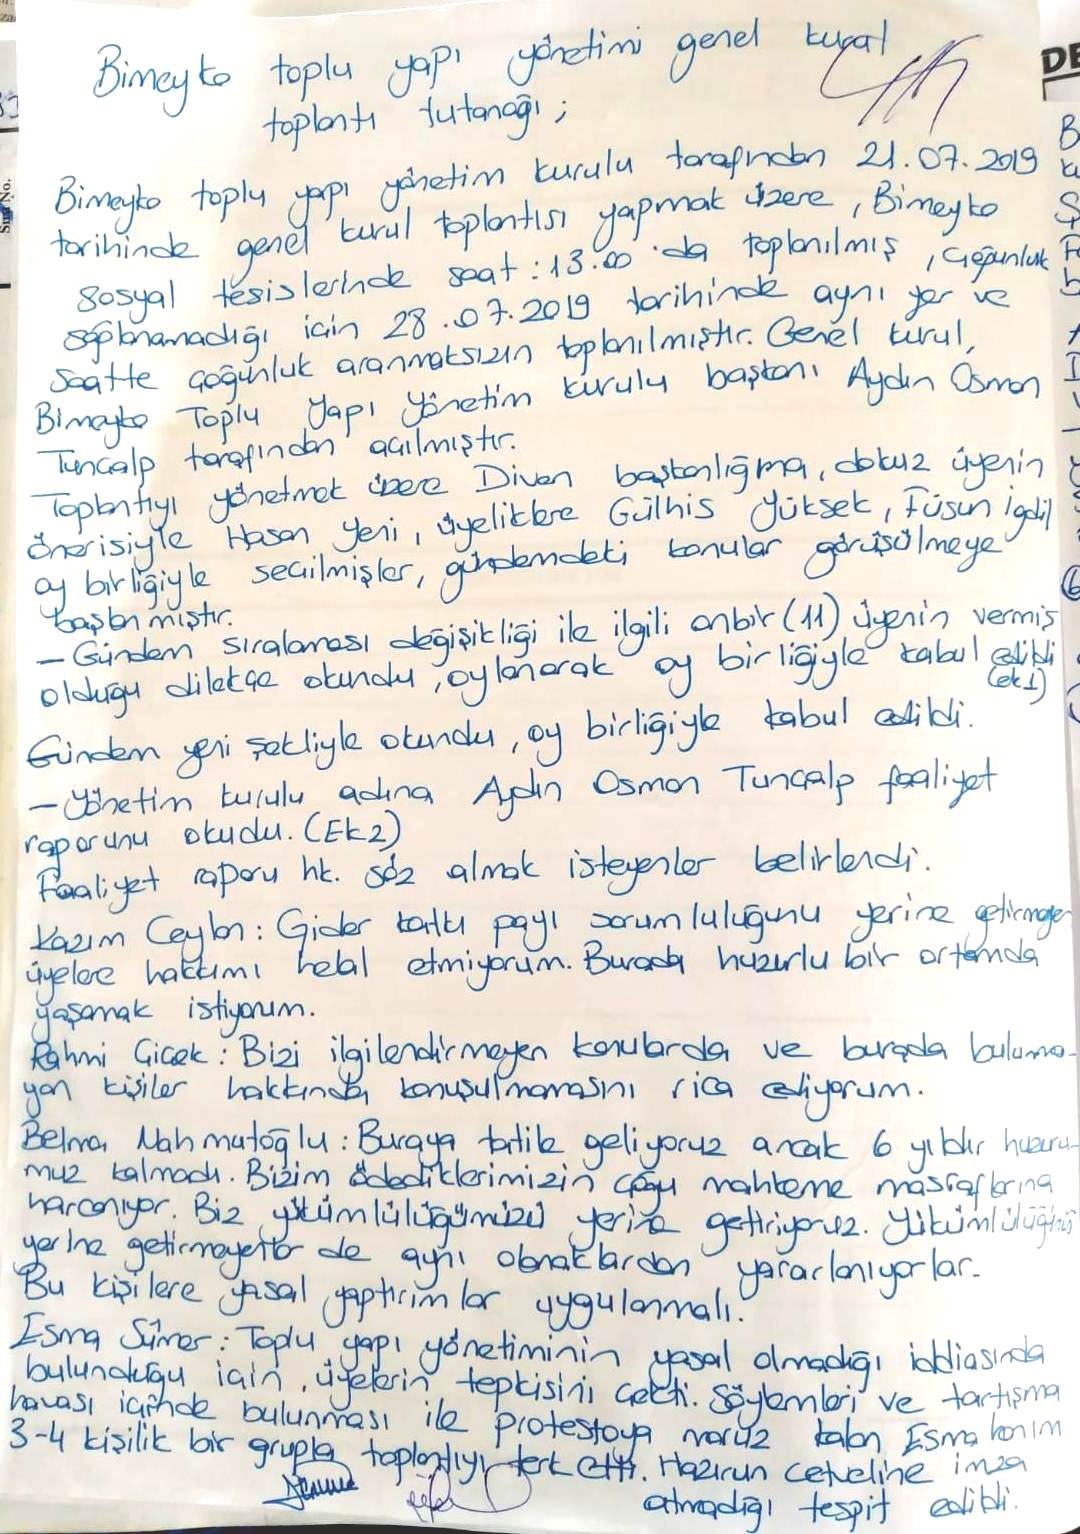 Bimeyko toplu yapı yönetimi genel kurul
toplantı tutanağı ;
Bimeyko toplu yapı yönetim kurulu tarafından 21.07.2019
tarihinde genel kurul toplantısı yapmak üzere , Bimeyko
sosyal tesislerinde saat : 13.00 'da toplanılmış , çoğunluk
sağlanamadığı için 28.07.2019 tarihinde aynı yer ve
saatte çoğunluk aranmaksızın toplanılmıştır. Genel kurul,
Bimeyko Toplu Yapı Yönetim kurulu başkanı Aydın Osman
Tuncalp tarafından açılmıştır.
Toplantıyı yönetmek üzere Divan başkanlığına, dokuz üyenin
önerisiyle Hasan Yeni, üyeliklere Gülhis Yüksek, Füsun İgdil
oy birliğiyle seçilmişler, gündemdeki konular görüşülmeye
başlanmıştır.
- Gündem sıralaması değişikliği ile ilgili onbir (11) üyenin vermiş
olduğu dilekçe okundu, oylanarak oy birliğiyle kabul edildi
(ek1)
Gündem yeni şekliyle okundu, oy birliğiyle kabul edildi.
- Yönetim kurulu adına Aydın Osman Tuncalp faaliyet
raporunu okudu. (Ek2)
Faaliyet raporu hk. söz almak isteyenler belirlendi.
Kazım Ceylan : Gider katkı payı sorumluluğunu yerine getirmeyen
üyelere hakkımı helal etmiyorum. Burada huzurlu bir ortamda
yaşamak istiyorum.
Rahmi Çiçek : Bizi ilgilendirmeyen konularda ve burada bulunma-
yan kişiler hakkında konuşulmamasını rica ediyorum.
Belma Nahmutoğlu : Buraya tatile geliyoruz ancak 6 yıldır huzuru-
muz kalmadı. Bizim ödediklerimizin çoğu mahkeme masraflarına
harcanıyor. Biz yükümlülüğümüzü yerine getiriyoruz. Yükümlülüğünü
yerine getirmeyenler de aynı olanaklardan yararlanıyorlar.
Bu kişilere yasal yaptırımlar uygulanmalı.
Esma Sümer : Toplu yapı yönetiminin yasal olmadığı iddiasında
bulunduğu için, üyelerin tepkisini çekti. Söylemleri ve tartışma
havası içinde bulunması ile protestoya maruz kalan Esma hanım
3-4 kişilik bir grupla toplantıyı terk etti. Hazirun cetveline imza
atmadığı tespit edildi.